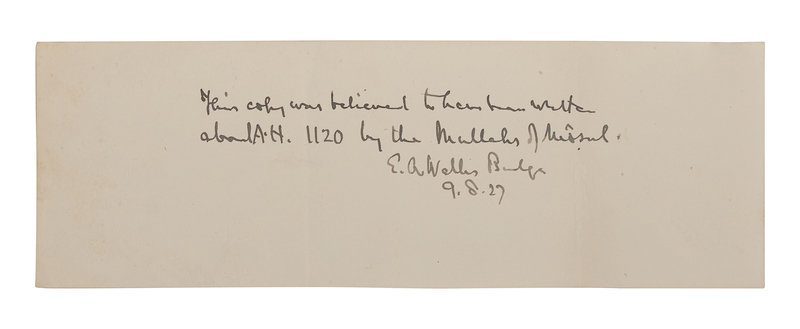 This copy was believed to have been written
about A.H. 1120 by the Mullahs of Môsul.
E. A. Wallis Budge
9.8.27